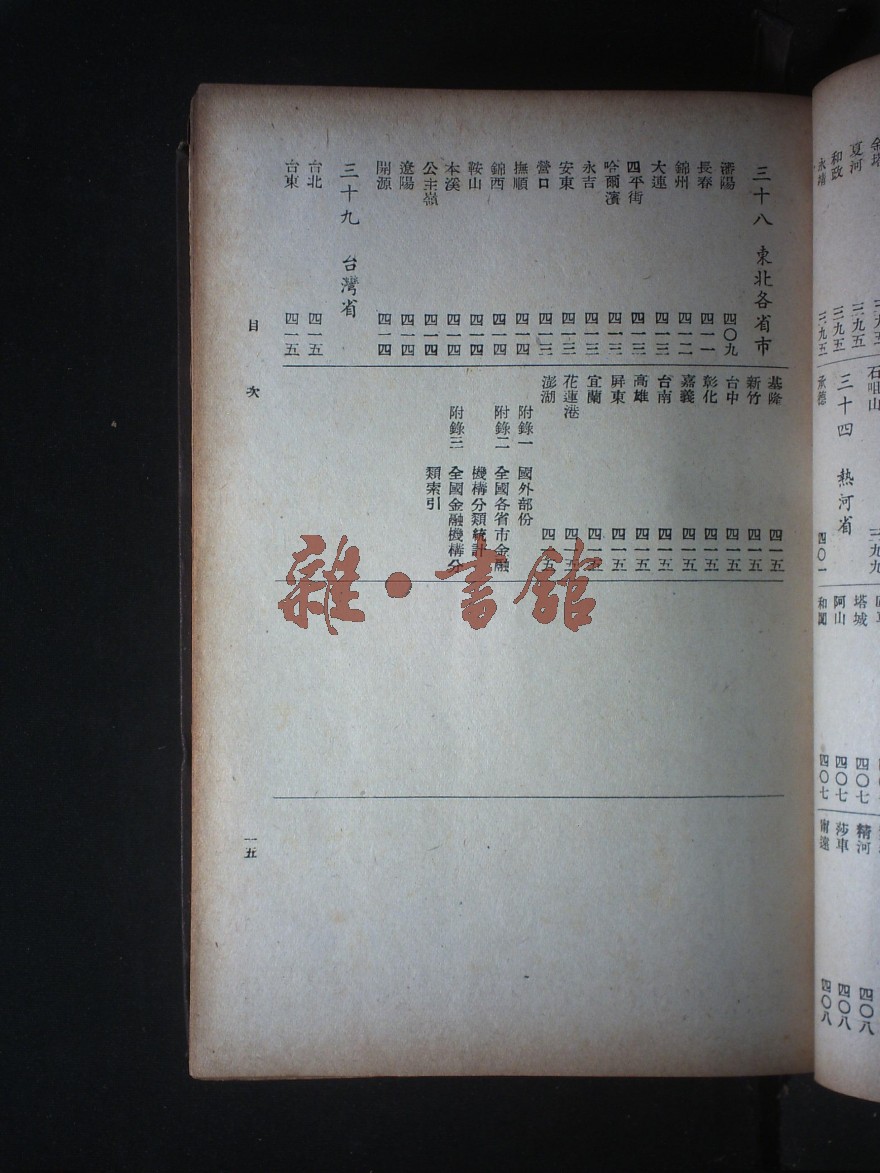 夏河 三九五
和政 三九五
永靖 三九五
石咀山 三九九
三十四 熱河省
承德 四〇一
塔城 四〇七
阿山 四〇七
和闐 四〇七
精河 四〇八
莎車 四〇八
甯遠 四〇八
三十八 東北各省市
瀋陽 四〇九
長春 四一一
錦州 四一二
大連 四一三
四平街 四一三
哈爾濱 四一三
永吉 四一三
安東 四一三
營口 四一三
撫順 四一四
錦西 四一四
鞍山 四一四
本溪 四一四
公主嶺 四一四
遼陽 四一四
開源 四一四
三十九 台灣省
台北 四一五
台東 四一五
基隆 四一五
新竹 四一五
台中 四一五
彰化 四一五
嘉義 四一五
台南 四一五
高雄 四一五
屏東 四一五
宜蘭 四一五
花蓮港 四一五
澎湖 四一五
附錄一 國外部份
附錄二 全國各省市金融
機構分類統計
附錄三 全國金融機構分
類索引
目次
一五
雜·書館